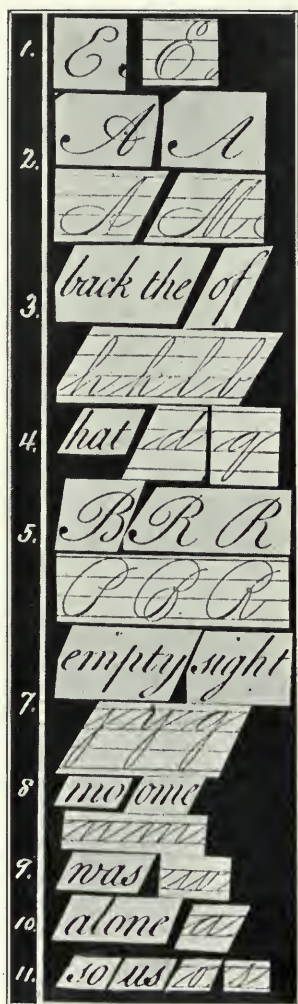 1. E. E.
2. A A
A M
3. back the of
h h l b
4. hat d q
5. B R R
P B R
empty sight
7. j y g
8 mo ome
n m
9. was w
10. alone a
11. so us o s